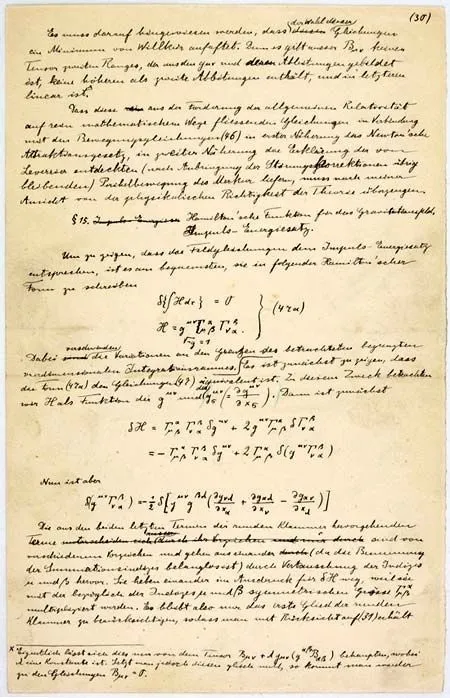 (30)
der Wahl dieser
Es muss darauf hingewiesen werden, dass diesen Gleichungen
ein Minimum von Willkür anhaftet. Denn es gibt ausser Bμν keinen
Tensor zweiten Ranges, der aus den gμν und deren Ableitungen gebildet
ist, keine höheren als zweite Ableitungen enthält, und in letzteren
linear ist.x
Dass diese aus der Forderung der allgemeinen Relativität
auf rein mathematischem Wege fliessenden Gleichungen in Verbindung
mit den Bewegungsgleichungen (46) in erster Näherung das Newton'sche
Attraktionsgesetz, in zweiter Näherung die Erklärung der von
Leverrier entdeckten (nach Anbringung der Störungskorrektionen übrig
bleibenden) Perihelbewegung des Merkur liefern, muss nach meiner
Ansicht von der physikalischen Richtigkeit der Theorie überzeugen.
§ 15. Impuls-Energiesatz Hamilton'sche Funktion für das Gravitationsfeld,
Impuls-Energiesatz.
Um zu zeigen, dass die Feldgleichungen dem Impuls-Energiesatz
entsprechen, ist es am bequemsten, sie in folgender Hamilton'scher
Form zu schreiben
δ{∫H dτ} = 0
H = g^μν Γ^α_μβ Γ^β_να } (47a)
√-g = 1
verschwinden
Dabei sind die Variationen an den Grenzen des betrachteten begrenzten
vierdimensionalen Integrationsraumes. Es ist zunächst zu zeigen, dass
die Form (47a) den Gleichungen (47) äquivalent ist. Zu diesem Zweck betrachten
wir H als Funktion der g^μν und der g^μν_σ (= ∂g^μν/∂x_σ). Dann ist zunächst
δH = Γ^α_μβ Γ^β_να δg^μν + 2g^μν Γ^α_μβ δΓ^β_να
= −Γ^α_μβ Γ^β_να δg^μν + 2Γ^α_μβ δ(g^μν Γ^β_να)
Nun ist aber
δ(g^μν Γ^β_να) = −½ δ[g^μν g^βλ(∂g_νλ/∂x_α + ∂g_αλ/∂x_ν − ∂g_αν/∂x_λ)]
Die aus den beiden letzten Termen der runden Klammer hervorgehenden
Terme sind von
verschiedenem Vorzeichen und gehen auseinander (da die Benennung
der Summationsindizes belanglos ist) durch Vertauschung der Indizes
μ und β hervor. Sie heben einander im Ausdruck für δH weg, weil sie
mit der bezüglich der Indizes μ und β symmetrischen Grösse Γ^α_μβ
multipliziert werden. Es bleibt also nur das erste Glied der runden
Klammer zu berücksichtigen, sodass man mit Rücksicht auf (31) erhält
x Eigentlich lässt sich dies nur von dem Tensor Bμν + λ gμν (g^αβ Bαβ) behaupten, wobei
λ eine Konstante ist. Setzt man jedoch diesen gleich null, so kommt man wieder
zu den Gleichungen Bμν = 0.